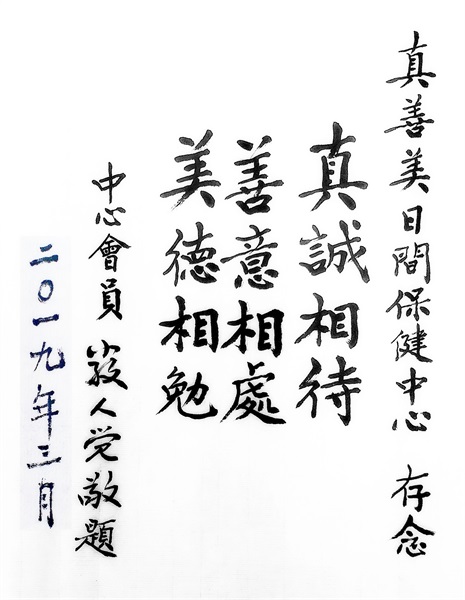 真善美日間保健中心 存念
真誠相待
善意相處
美德相勉
中心會員 人 敬題
二〇一九年三月